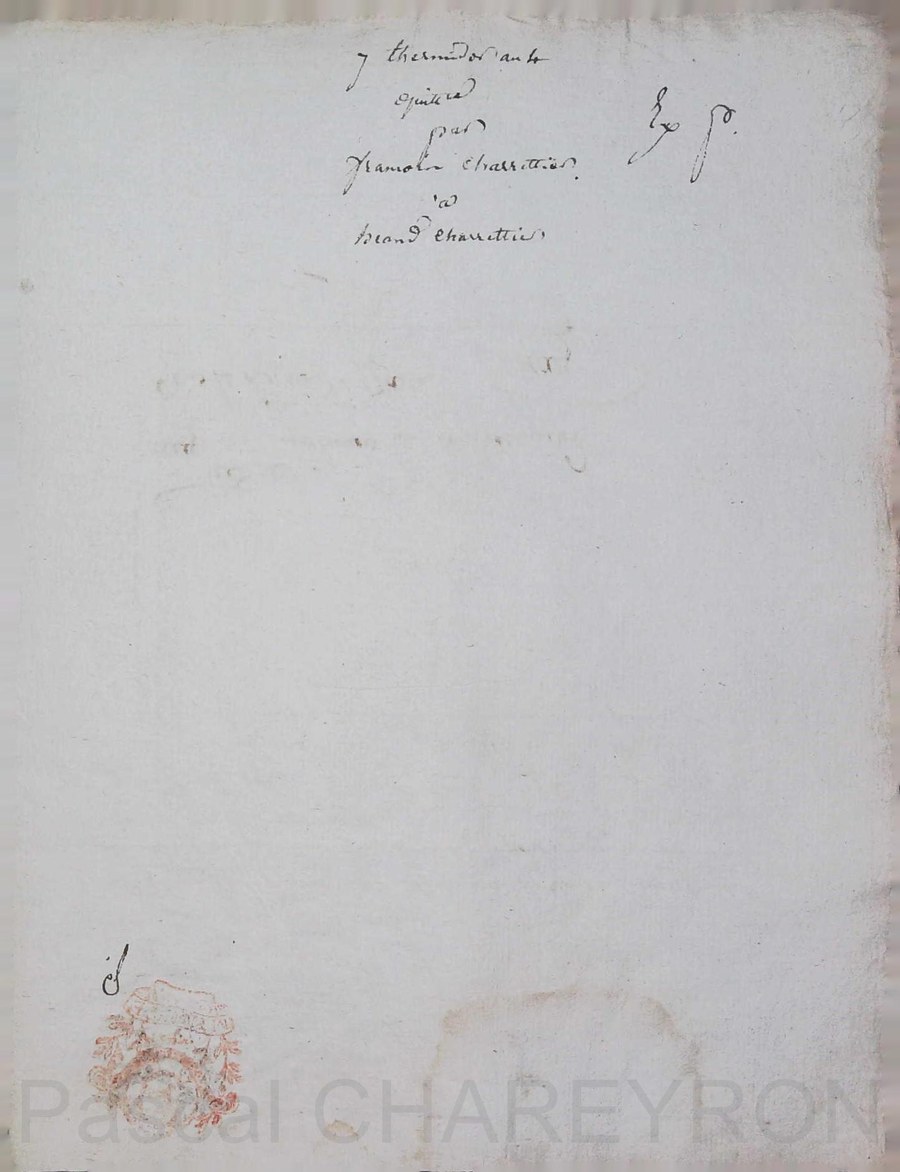 7 thermidor an 4
quittce
par
francois charrettier
à
brand charrettier
Ex p.
Pascal CHAREYRON